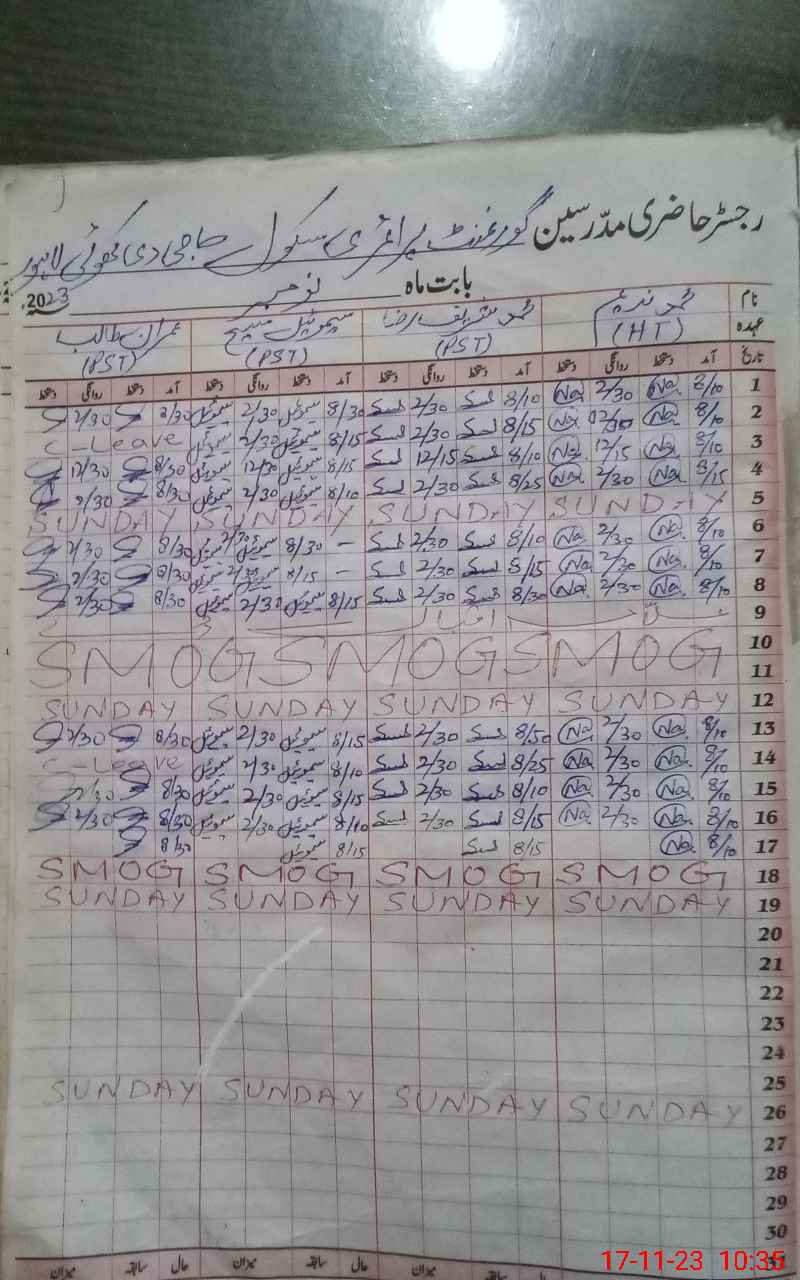 رجسٹر حاضری مدرسین گورنمنٹ پرائمری سکول حاجی دی کھوئی لاہور
بابت ماہ نومبر 2023
نام محمد ندیم محمد شریف رضا سیموئیل مسیح عمران طالب
عہدہ (HT) (PST) (PST) (PST)
تاریخ آمد دستخط روانگی دستخط آمد دستخط روانگی دستخط آمد دستخط روانگی دستخط آمد دستخط روانگی دستخط
1 8/10 Na 2/30 Na 8/10 2/30 8/30 سیموئیل 2/30 سیموئیل 8/30 2/30
2 8/10 Na Na 8/15 2/30 8/15 سیموئیل 2/30 سیموئیل C-Leave
3 8/10 Na 12/15 Na 8/10 12/15 8/15 سیموئیل 12/30 سیموئیل 8/30 12/30
4 8/15 Na 2/30 Na 8/25 2/30 8/10 سیموئیل 2/30 سیموئیل 8/30 2/30
5 SUNDAY SUNDAY SUNDAY SUNDAY
6 8/10 Na 2/30 Na 8/10 2/30 – 8/30 سیموئیل 2/30 سیموئیل 8/30 2/30
7 8/10 Na 2/30 Na 8/15 2/30 – 8/15 سیموئیل 2/30 سیموئیل 8/30 2/30
8 8/10 Na 2/30 Na 8/30 2/30 8/15 سیموئیل 2/30 سیموئیل 8/30 2/30
9 اقبال
10
11 SMOG SMOG SMOG
12 SUNDAY SUNDAY SUNDAY SUNDAY
13 8/10 Na 2/30 Na 8/50 2/30 8/15 سیموئیل 2/30 سیموئیل 8/30 2/30
14 8/10 Na 2/30 Na 8/25 2/30 8/10 سیموئیل 2/30 سیموئیل C-Leave
15 8/10 Na 2/30 Na 8/10 2/30 8/15 سیموئیل 2/30 سیموئیل 8/30 2/30
16 8/10 Na 2/30 Na 8/15 2/30 8/10 سیموئیل 2/30 سیموئیل 8/30 2/30
17 8/10 Na 8/15 8/15 سیموئیل 8/30
18 SMOG SMOG SMOG SMOG
19 SUNDAY SUNDAY SUNDAY SUNDAY
20
21
22
23
24
25
26 SUNDAY SUNDAY SUNDAY SUNDAY
27
28
29
30
حال سابقہ میزان حال سابقہ میزان حال سابقہ میزان
17-11-23 10:35